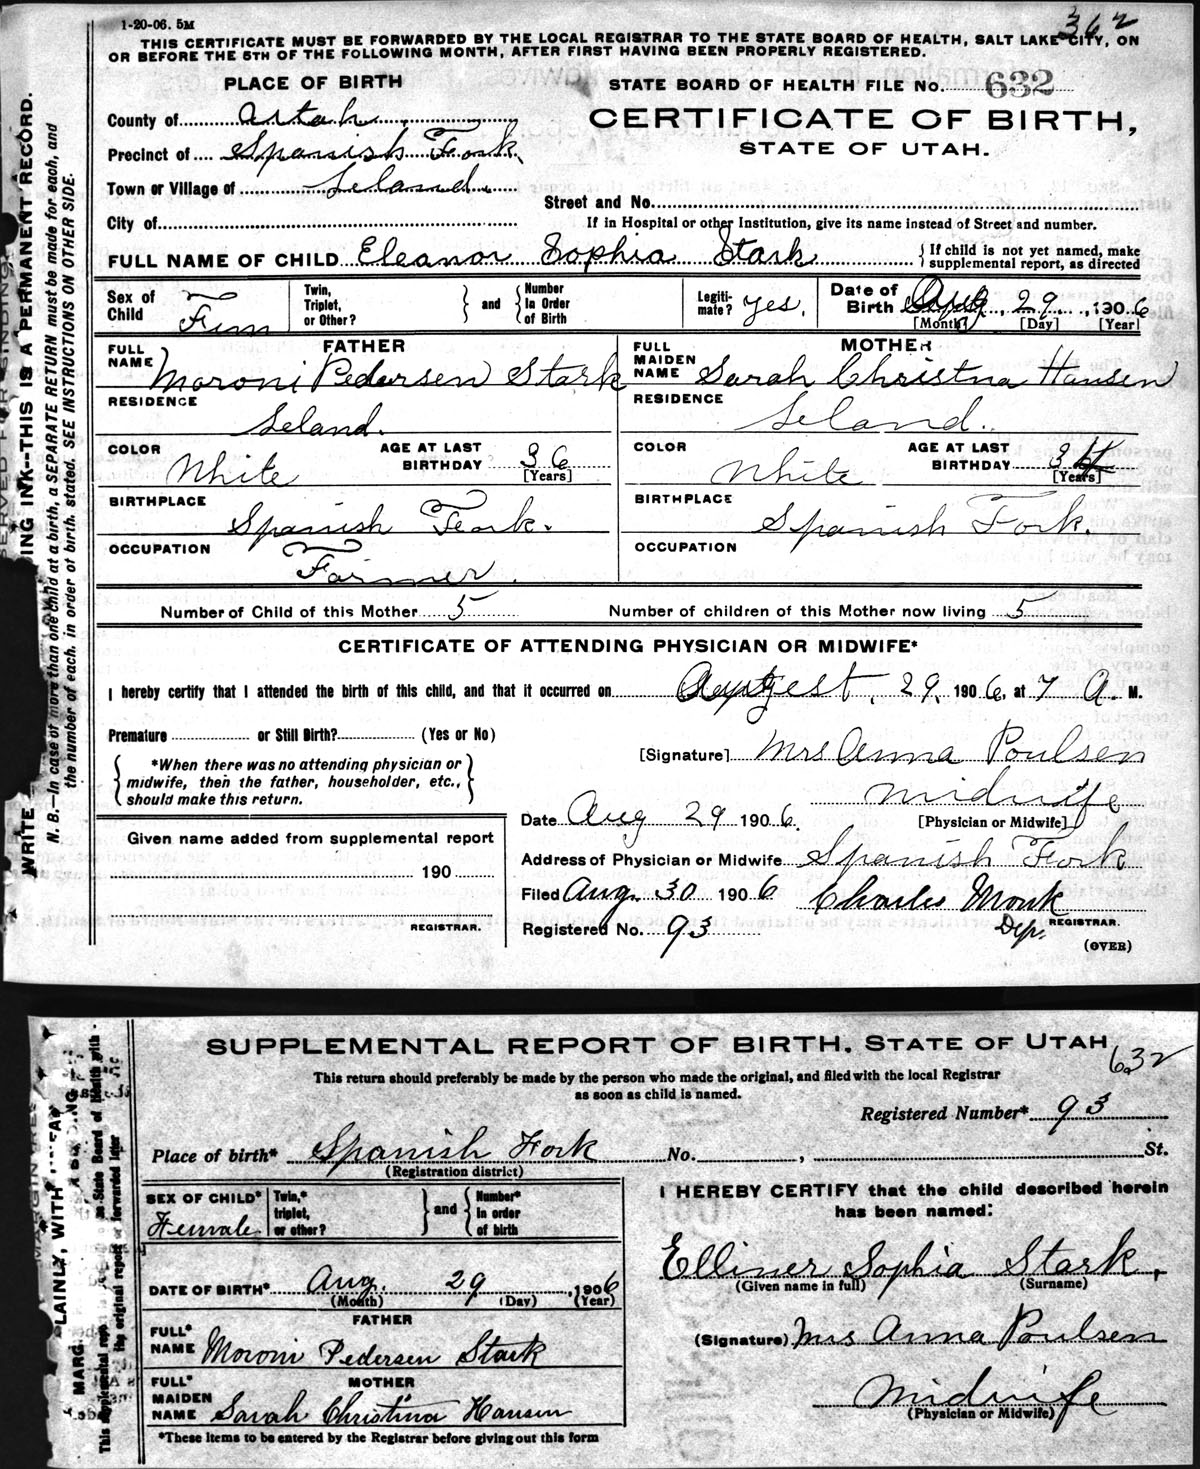 1-20-06. 5M
362
THIS CERTIFICATE MUST BE FORWARDED BY THE LOCAL REGISTRAR TO THE STATE BOARD OF HEALTH, SALT LAKE CITY, ON
OR BEFORE THE 5TH OF THE FOLLOWING MONTH, AFTER FIRST HAVING BEEN PROPERLY REGISTERED.
PLACE OF BIRTH
STATE BOARD OF HEALTH FILE No. 632
County of Utah
CERTIFICATE OF BIRTH,
Precinct of Spanish Fork
STATE OF UTAH.
Town or Village of Leland
Street and No.
City of
If in Hospital or other Institution, give its name instead of Street and number.
FULL NAME OF CHILD Eleanor Sophia Stark { If child is not yet named, make supplemental report, as directed
Sex of Child Fem
Twin, Triplet, or Other? } and { Number in Order of Birth
Legitimate? yes.
Date of Birth Aug. 29, 1906
[Month] [Day] [Year]
FATHER
FULL NAME Moroni Pedersen Stark
RESIDENCE Leland.
COLOR White
AGE AT LAST BIRTHDAY 36 [Years]
BIRTHPLACE Spanish Fork.
OCCUPATION Farmer.
MOTHER
FULL MAIDEN NAME Sarah Christna Hansen
RESIDENCE Leland.
COLOR White
AGE AT LAST BIRTHDAY 34 [Years]
BIRTHPLACE Spanish Fork.
OCCUPATION
Number of Child of this Mother 5
Number of children of this Mother now living 5
CERTIFICATE OF ATTENDING PHYSICIAN OR MIDWIFE*
I hereby certify that I attended the birth of this child, and that it occurred on Augest. 29, 1906, at 7 A. M.
Premature or Still Birth? (Yes or No)
[Signature] Mrs Anna Poulsen
{ *When there was no attending physician or midwife, then the father, householder, etc., should make this return. }
Midwife
[Physician or Midwife]
Date Aug 29 1906.
Given name added from supplemental report
190
REGISTRAR.
Address of Physician or Midwife Spanish Fork
Filed Aug. 30 1906 Charles Monk
Dep. REGISTRAR.
Registered No. 93
(OVER)
WRITE
ING INK--THIS IS A PERMANENT RECORD.
N. B.—In case of more than one child at a birth, a SEPARATE RETURN must be made for each, and
the number of each, in order of birth, stated. SEE INSTRUCTIONS ON OTHER SIDE.
SUPPLEMENTAL REPORT OF BIRTH. STATE OF UTAH
632
This return should preferably be made by the person who made the original, and filed with the local Registrar
as soon as child is named.
Registered Number* 93
Place of birth* Spanish Fork No. , St.
(Registration district)
SEX OF CHILD* Female
Twin,* triplet, or other? } and { Number* in order of birth
DATE OF BIRTH* Aug. 29, 1906
(Month) (Day) (Year)
FATHER
FULL* NAME Moroni Pedersen Stark
MOTHER
FULL* MAIDEN NAME Sarah Christina Hansen
*These items to be entered by the Registrar before giving out this form
I HEREBY CERTIFY that the child described herein
has been named:
Elliner Sophia Stark.
(Given name in full) (Surname)
(Signature) Mrs Anna Poulsen
Midwife
(Physician or Midwife)